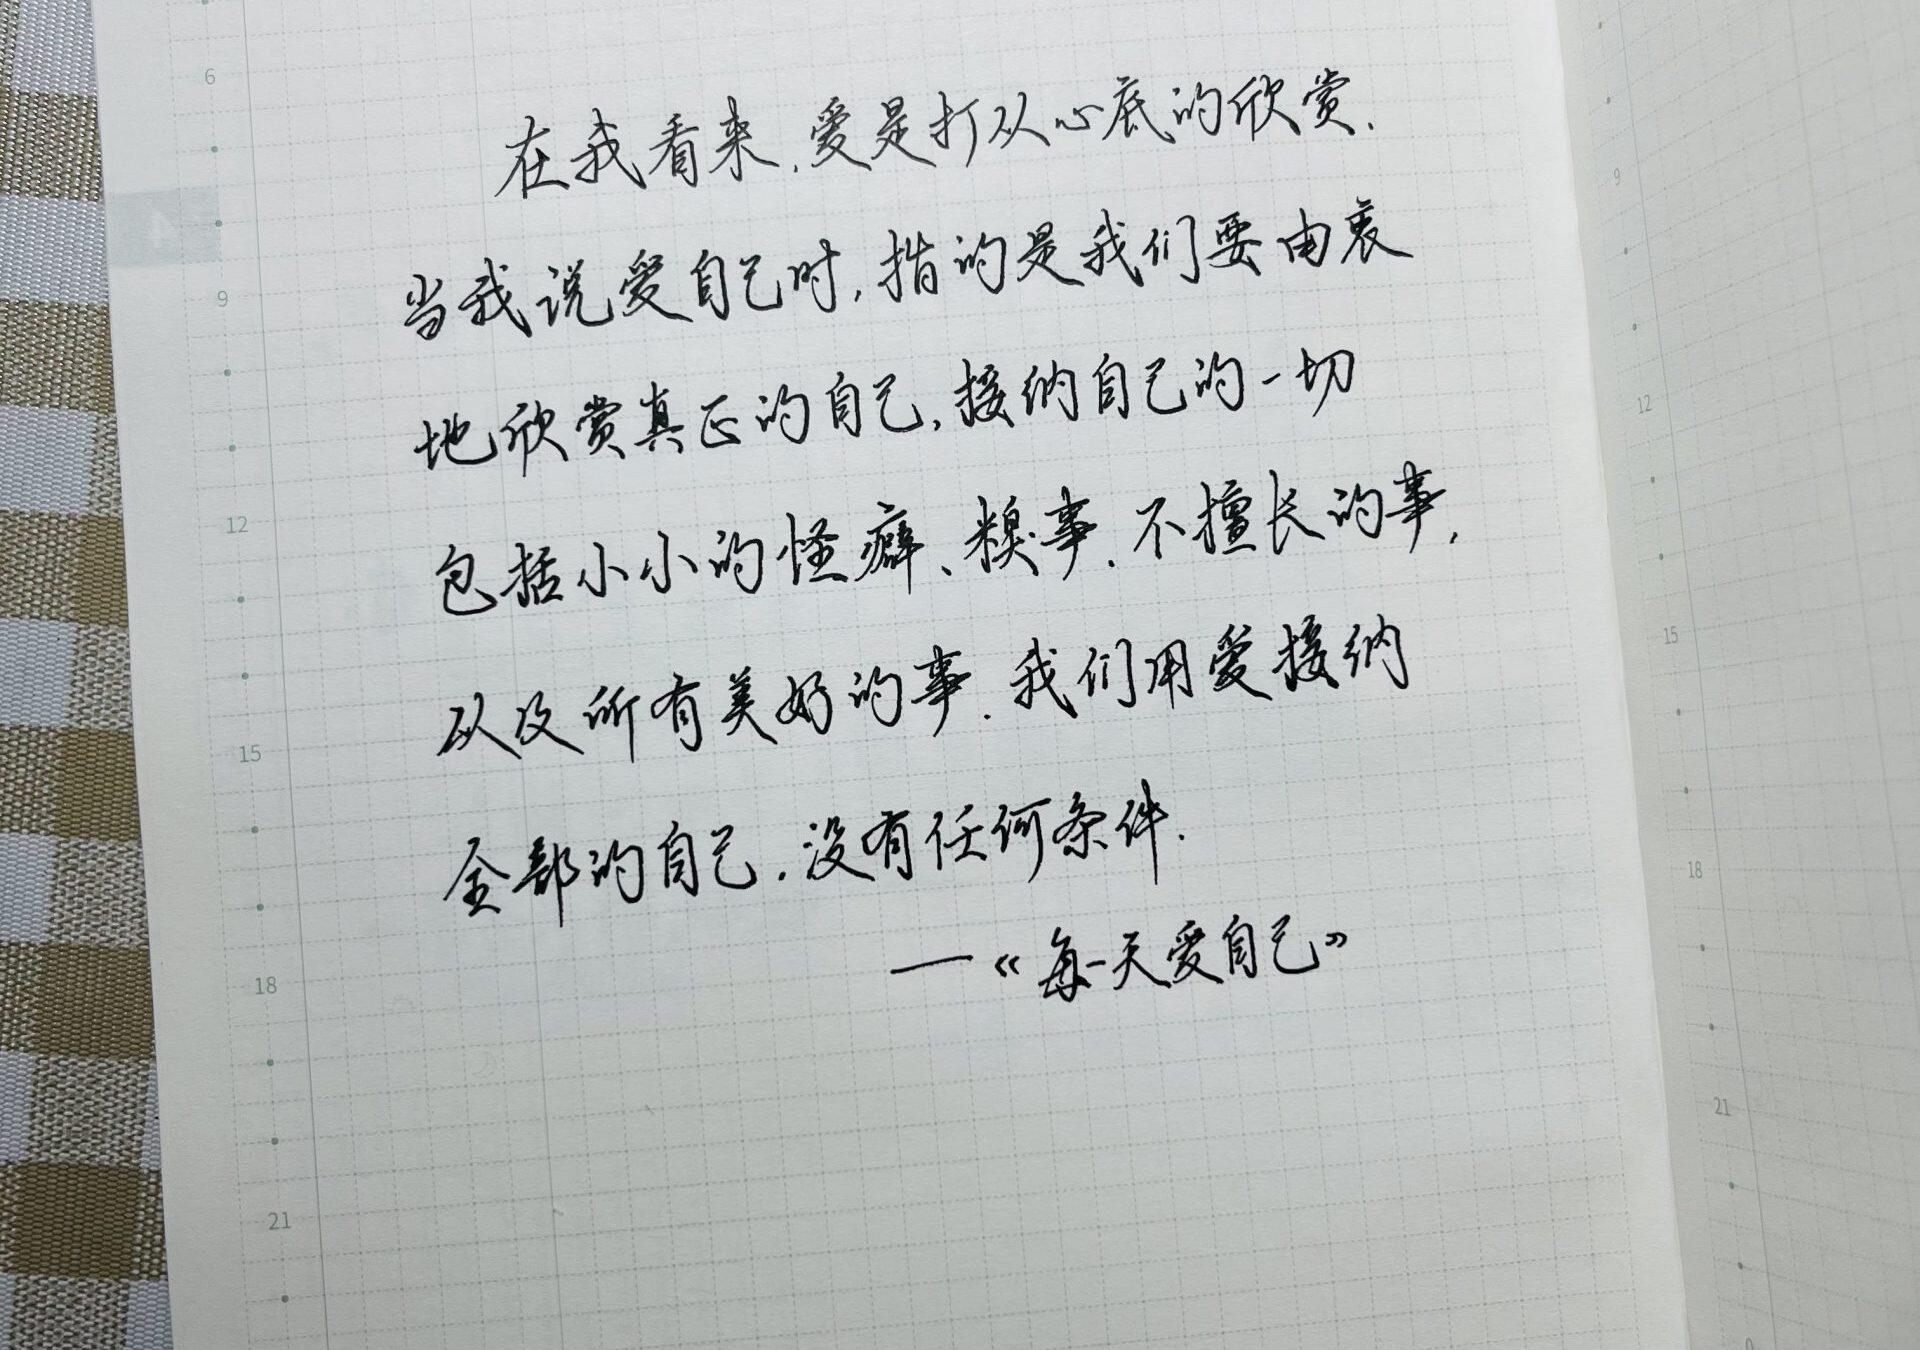 在我看来,爱是打从心底的欣赏.
当我说爱自己时,指的是我们要由衷
地欣赏真正的自己,接纳自己的一切
包括小小的怪癖、糗事、不擅长的事,
以及所有美好的事.我们用爱接纳
全部的自己.没有任何条件.
—《每一天爱自己》
6
9
12
15
18
21
9
12
15
18
21